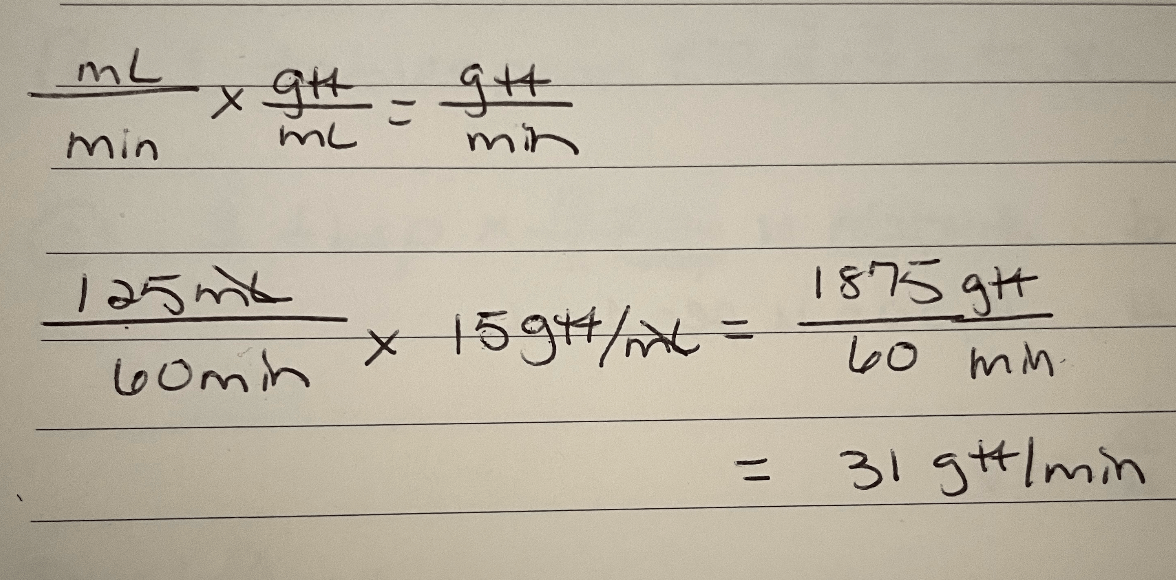 mL/min × gtt/mL = gtt/min
125 mL/60 min × 15 gtt/mL = 1875 gtt/60 min
= 31 gtt/min